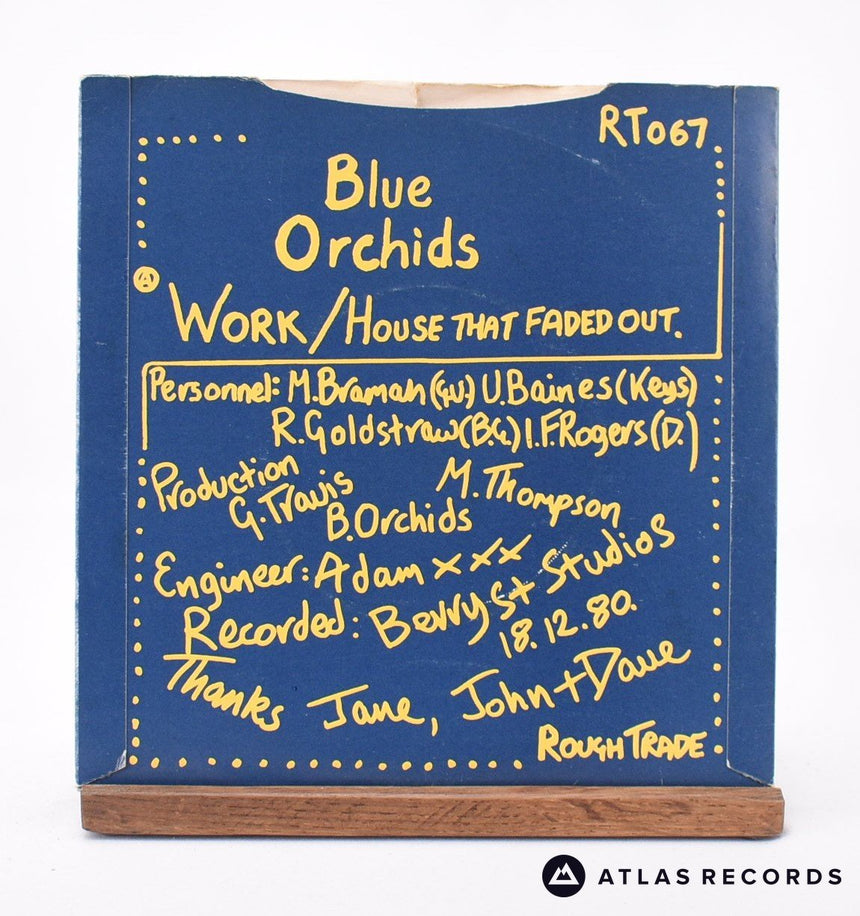 RT067
Blue
Orchids
WORK/HOUSE THAT FADED OUT.
Personnel: M.Bramah(GU.) U.Baines(Keys)
R.Goldstraw(B.G.) I.F.Rogers(D.)
Production
G.Travis M.Thompson
B.Orchids
Engineer: Adam xxx
Recorded: Berry St Studios
18.12.80.
Thanks Jane, John+Dave
ROUGH TRADE
ATLAS RECORDS